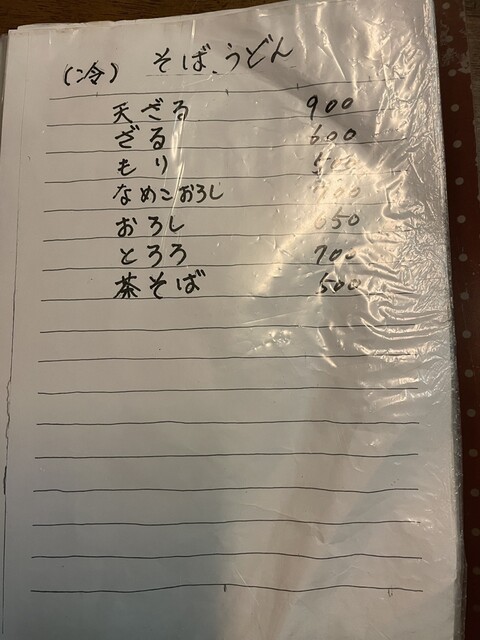 (冷) そば、うどん
天ざる 900
ざる 600
もり
なめこおろし
おろし 650
とろろ 700
茶そば 500